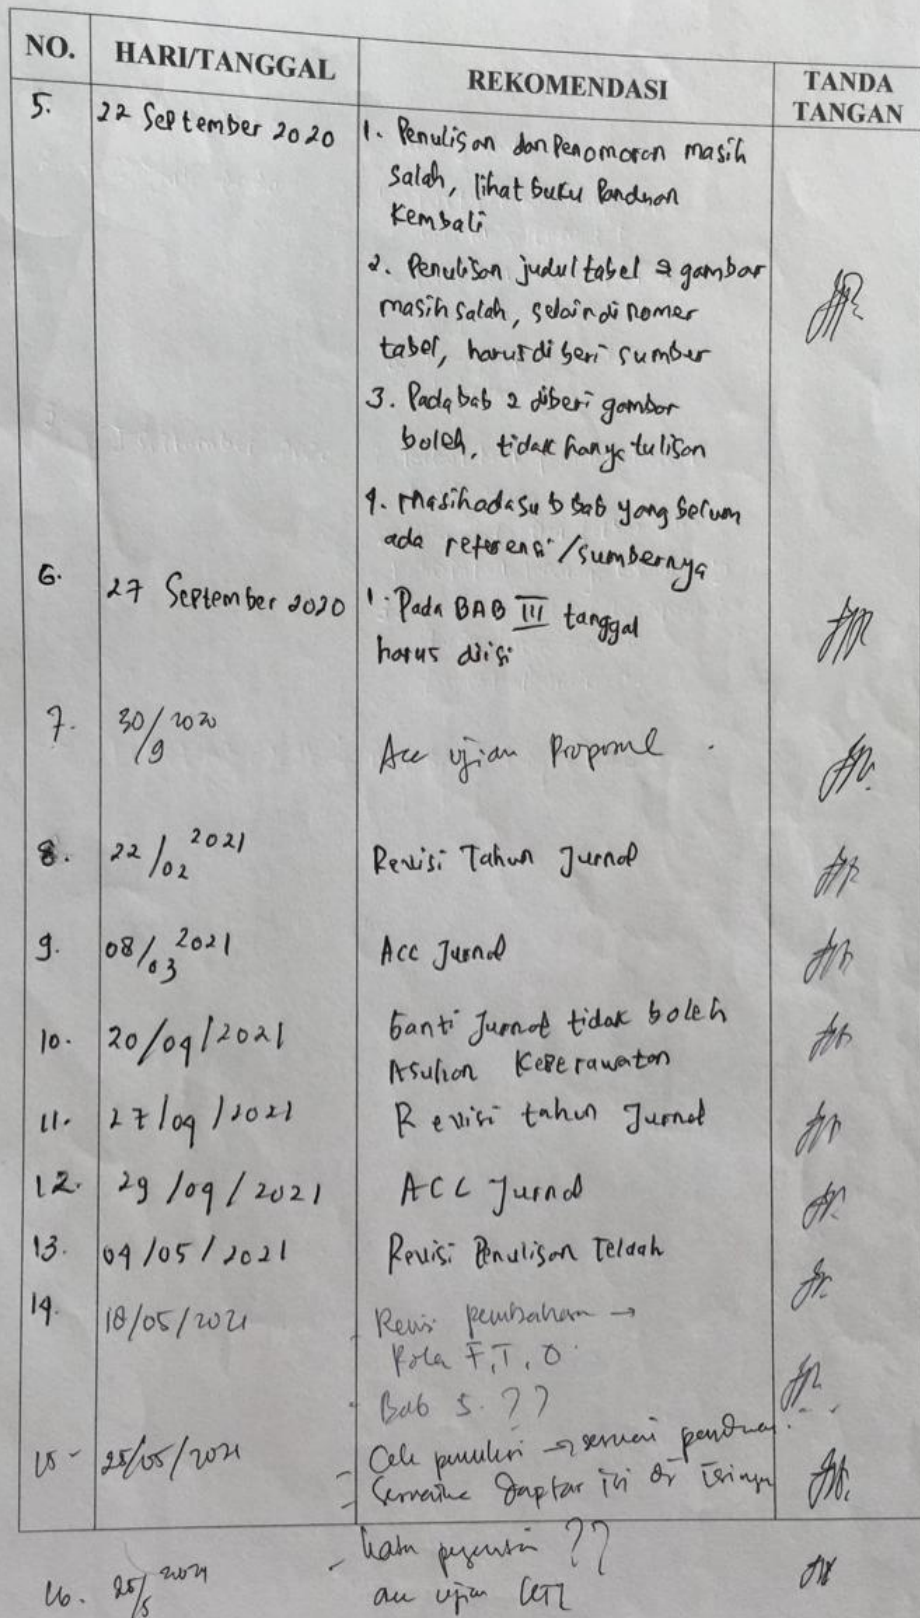 NO. HARI/TANGGAL REKOMENDASI TANDA TANGAN
5. 22 September 2020 1. Penulisan dan Penomoran masih
salah, lihat buku Panduan
Kembali
2. Penulisan judul tabel & gambar
masih salah, selain di nomer
tabel, harus di beri sumber
3. Pada bab 2 diberi gambar
boleh, tidak hanya tulisan
4. Masih ada sub bab yang belum
ada referensi/sumbernya
6. 27 September 2020 1. Pada BAB III tanggal
harus diisi
7. 30/9 2020 Acc ujian Proposal
8. 22/02 2021 Revisi Tahun Jurnal
9. 08/03 2021 Acc Jurnal
10. 20/04/2021 Ganti Jurnal tidak boleh
Asuhan Keperawatan
11. 27/04/2021 Revisi tahun Jurnal
12. 29/04/2021 ACC Jurnal
13. 04/05/2021 Revisi Penulisan Telaah
14. 18/05/2021 - Revisi pembahasan →
Pola F, T, O
- Bab 5. ??
15 - 25/05/2021 - Cek → sesuai panduan
- Daptar isi isinya
- Kata ??
16. 2021 acc ujian